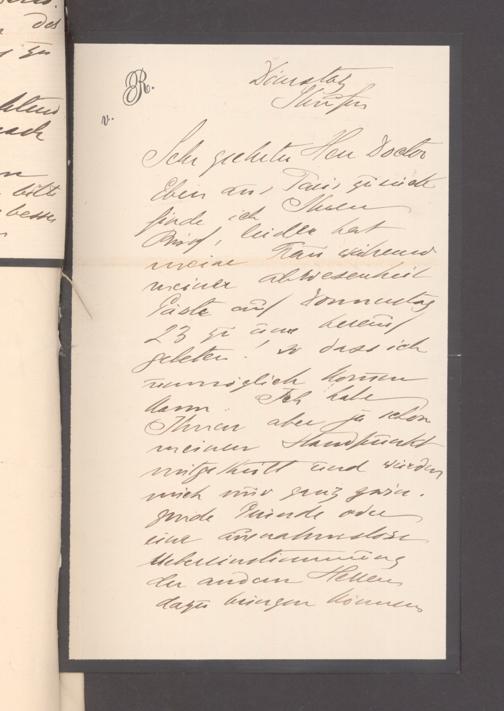 des
zu
bitte
besser
v. R.
Dienstag
Sehr geehrter Herr Doctor
Eben aus Paris zurück
finde ich Ihren
Brief, leider hat
meine Frau während
meiner abwesenheit
Gäste auf Donnerstag
23 zu uns
gebeten! so dass ich
unmöglich kommen
kann. Ich habe
Ihnen aber ja schon
meinen Standpunkt
mitgetheilt und würden
mich nur ganz zwin-
gende Gründe oder
eine ausnahmslose
Uebereinstimmung
der andern Herren
dazu bringen können